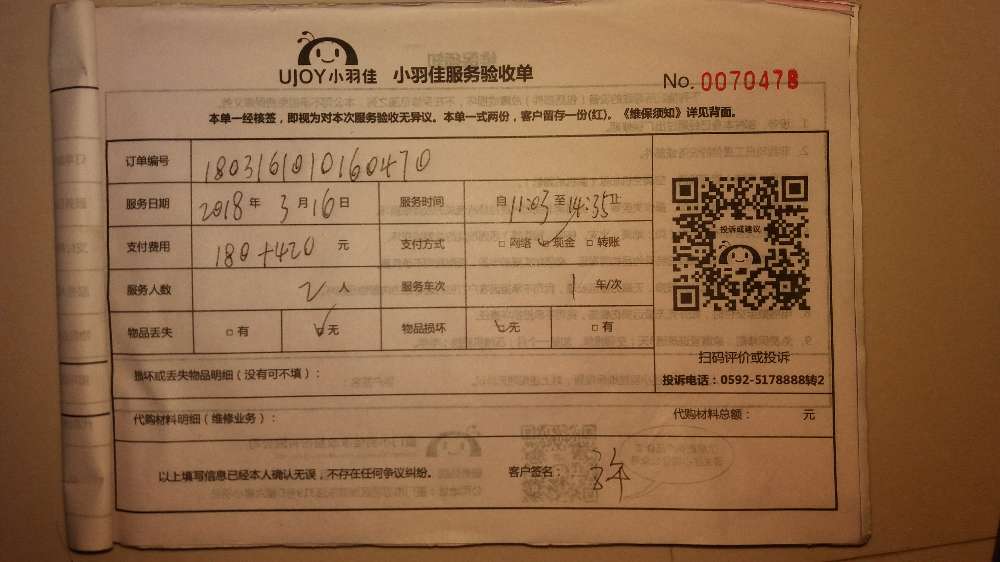 UJOY小羽佳 小羽佳服务验收单
No. 0070478
本单一经核签，即视为对本次服务验收无异议。本单一式两份，客户留存一份(红)。《维保须知》详见背面。
订单编号 1803161010160470
服务日期 2018年3月16日 服务时间 自11:03至14:35止
支付费用 180+420元 支付方式 □网络 □现金 □转账
投诉或建议
服务人数 2人 服务车次 1车/次
物品丢失 □有 □无 物品损坏 □无 □有
扫码评价或投诉
损坏或丢失物品明细（没有可不填）：
投诉电话：0592-5178888转2
代购材料明细（维修业务）： 代购材料总额： 元
以上填写信息已经本人确认无误，不存在任何争议纠纷。 客户签名：